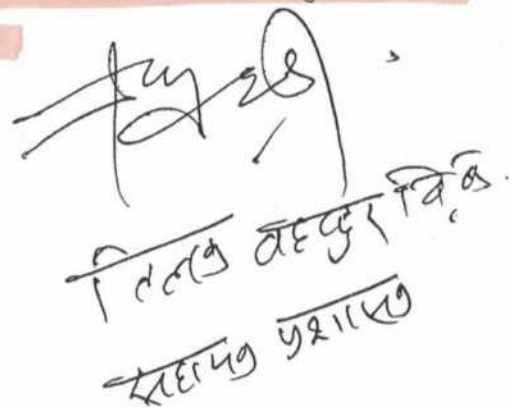 तिलक बहादुर वि.क.
सहायक प्रशासक